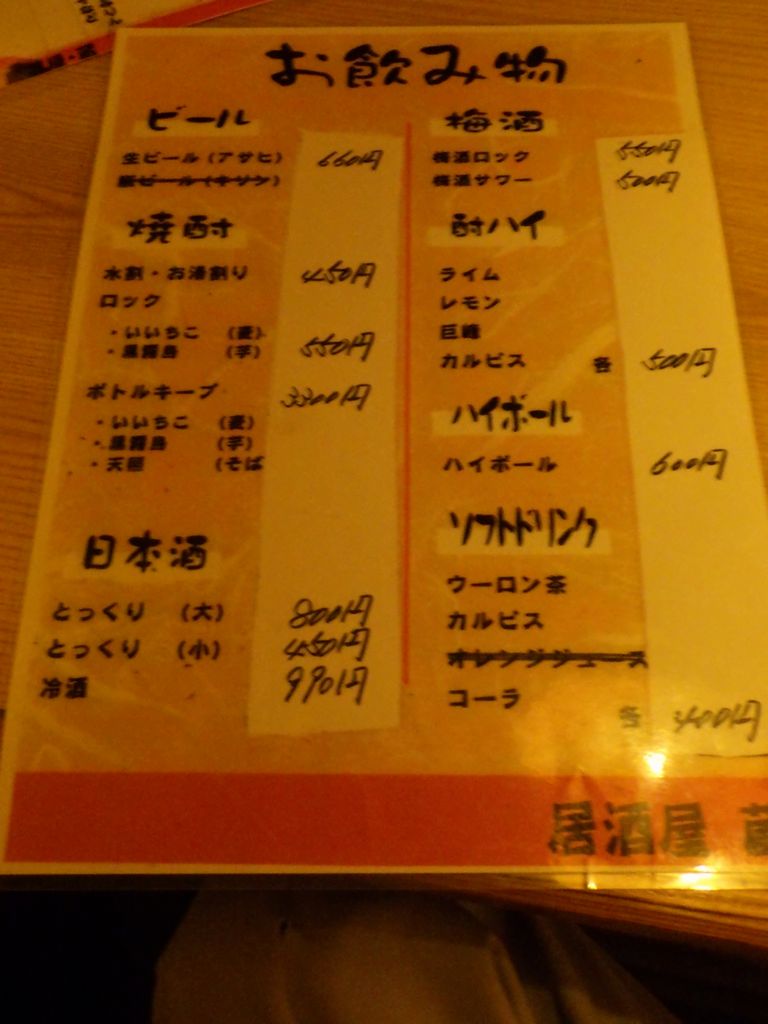 お飲み物
ビール
生ビール(アサヒ) 660円
瓶ビール(キリン)
焼酎
水割・お湯割り 450円
ロック
・いいちこ (麦)
・黒霧島 (芋) 550円
ボトルキープ 3300円
・いいちこ (麦)
・黒霧島 (芋)
・天照 (そば
日本酒
とっくり (大) 800円
とっくり (小) 450円
冷酒 990円
梅酒
梅酒ロック 550円
梅酒サワー 500円
酎ハイ
ライム
レモン
巨峰
カルピス 各 500円
ハイボール
ハイボール 600円
ソフトドリンク
ウーロン茶
カルピス
オレンジジュース
コーラ
各 400円
居酒屋